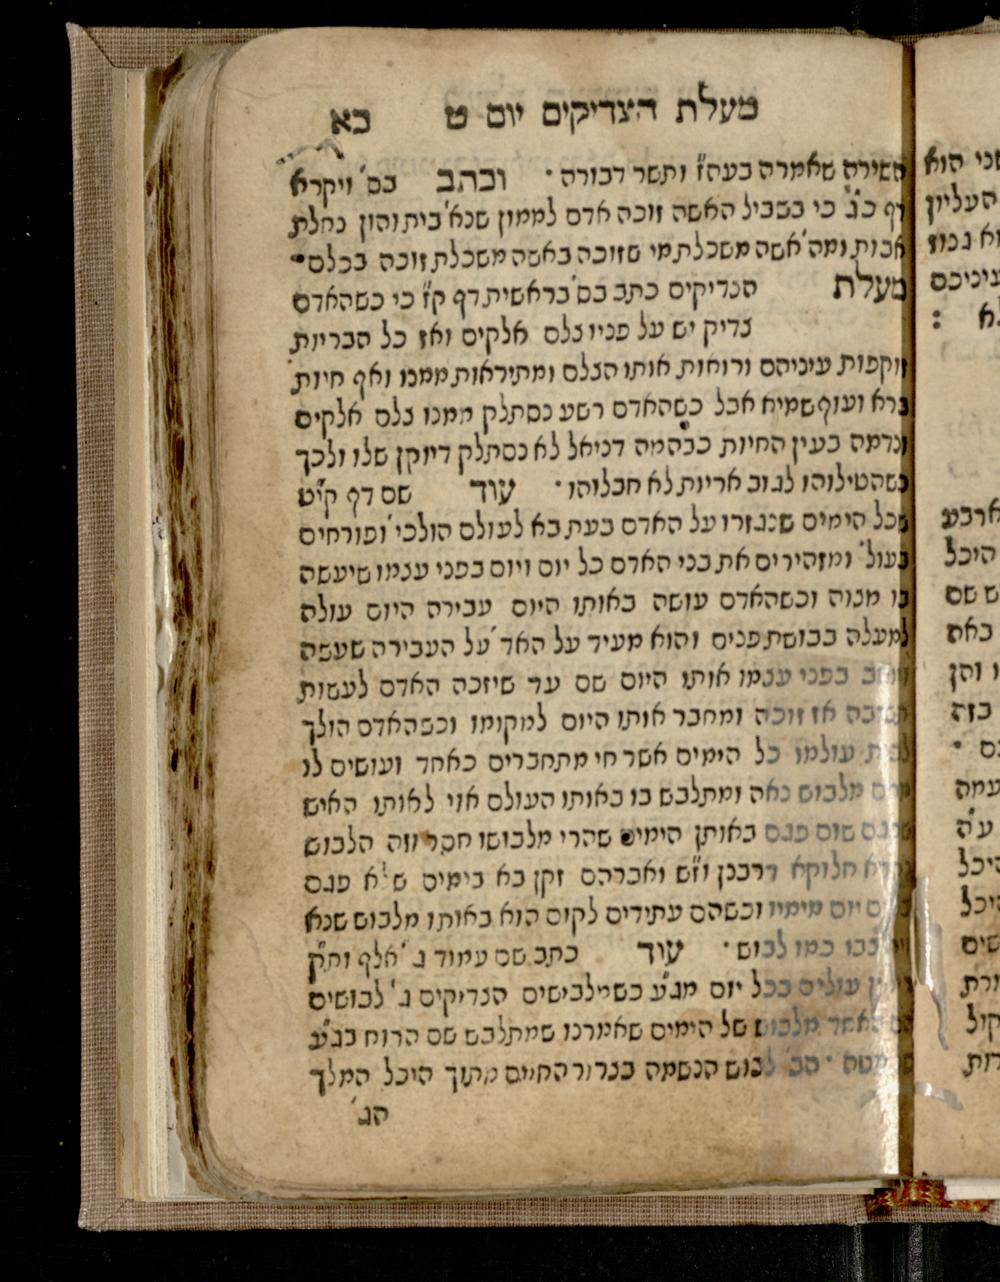 מעלת הצדיקים יום ט כא
השירה שאמרה בעה"ז ותשר דבורה · וכתב בס' ויקרא
דף כ"ג כי בשביל האשה זוכה אדם לממון שנא' בית והון נחלת
אבות ומה' אשה משכלת מי שזוכה באשה משכלת זוכה בכלם ·
מעלת הצדיקים כתב בס' בראשית דף ק"ז כי כשהאדם
צדיק יש על פניו צלם אלקים ואז כל הבריות
זוקפות עיניהם ורוחות אותו הצלם ומתיראות ממנו ואף חיות
ברא ועוף שמיא אבל כשהאדם רשע נסתלק ממנו צלם אלקים
ונדמה בעין החיות כבהמה דניאל לא נסתלק דיוקן שלו ולכך
כשהטילוהו לגוב אריות לא חבלוהו · עוד שם דף קי"ט
שכל הימים שנגזרו על האדם בעת בא לעולם הולכי' ופורחים
בעול' ומזהירים את בני האדם כל יום ויום בפני עצמו שיעשה
בו מצוה וכשהאדם עושה באותו היום עבירה היום עולה
למעלה בבושת פנים והוא מעיד על האד' על העבירה שעשה
בפני עצמו אותו היום שם עד שיזכה האדם לעשות
תשובה אז זוכה ומחבר אותו היום למקומו וכשהאדם הולך
לבית עולמו כל הימים אשר חי מתחברים כאחד ועושים לו
מהם מלבוש נאה ומתלבש בו באותו העולם אוי לאותו האיש
שפגם שום פגם באותן הימים שהרי מלבושו חסר וזה הלבוש
נקרא חלוקא דרבנן וז"ש ואברהם זקן בא בימים שלא פגם
בשום יום מימיו וכשהם עתידים לקום הוא באותו מלבוש שנא'
ויתיצבו כמו לבוש · עוד כתב שם עמוד ג' אלף ות"ק
עולים בכל יום מג"ע כשמלבישים הצדיקים ג' לבושים
מלבוש של הימים שאמרנו שמתלבש שם הרוח בג"ע
של מטה · הב' לבוש הנשמה בצרור החיים מתוך היכל המלך
הג'
שני הוא
העליון
גנוז
עיניכם
:
ארבע
היכל
שם
באת
והן
בזה
·
עמה
ע"ה
היכל
היכל